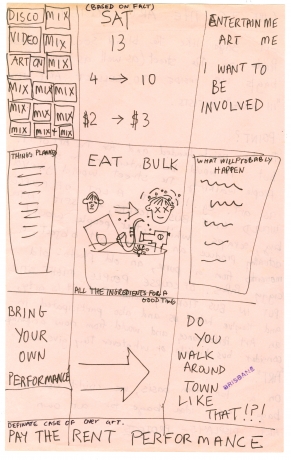 DISCO MIX
VIDEO MIX
ART ON MIX
MIX MIX MIX
MIX MIX MIX
MIX MIX + MIX
(BASED ON FACT)
SAT
13
4 → 10
$2 → $3
ENTERTAIN ME
ART ME
I WANT TO
BE
INVOLVED
THINGS PLANNED
EAT BULK
ALL THE INGREDIENTS FOR A
GOOD TIME
WHAT WILL PROBABLY
HAPPEN
BRING
YOUR
OWN
PERFORMANCE
DO
YOU
WALK
AROUND
TOWN
BRISBANE
LIKE
THAT!?!
DEFINATE CASE OF OVER ART.
PAY THE RENT PERFORMANCE